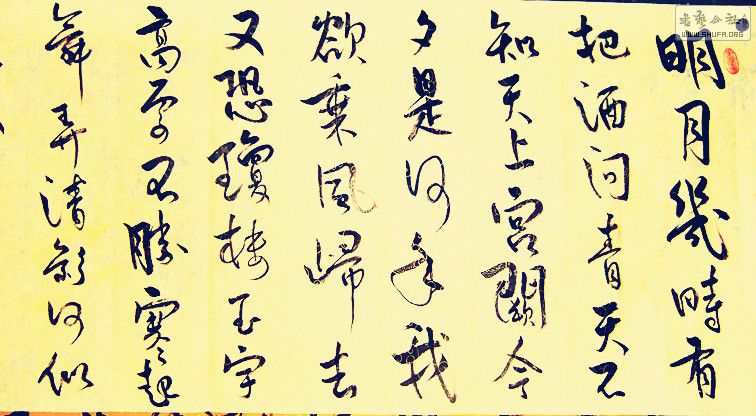 明月幾時有
把酒問青天不
知天上宮闕今
夕是何年我
欲乘風歸去
又恐瓊樓玉宇
高處不勝寒起
舞弄清影何似
书艺公社
WWW.SHUFA.ORG